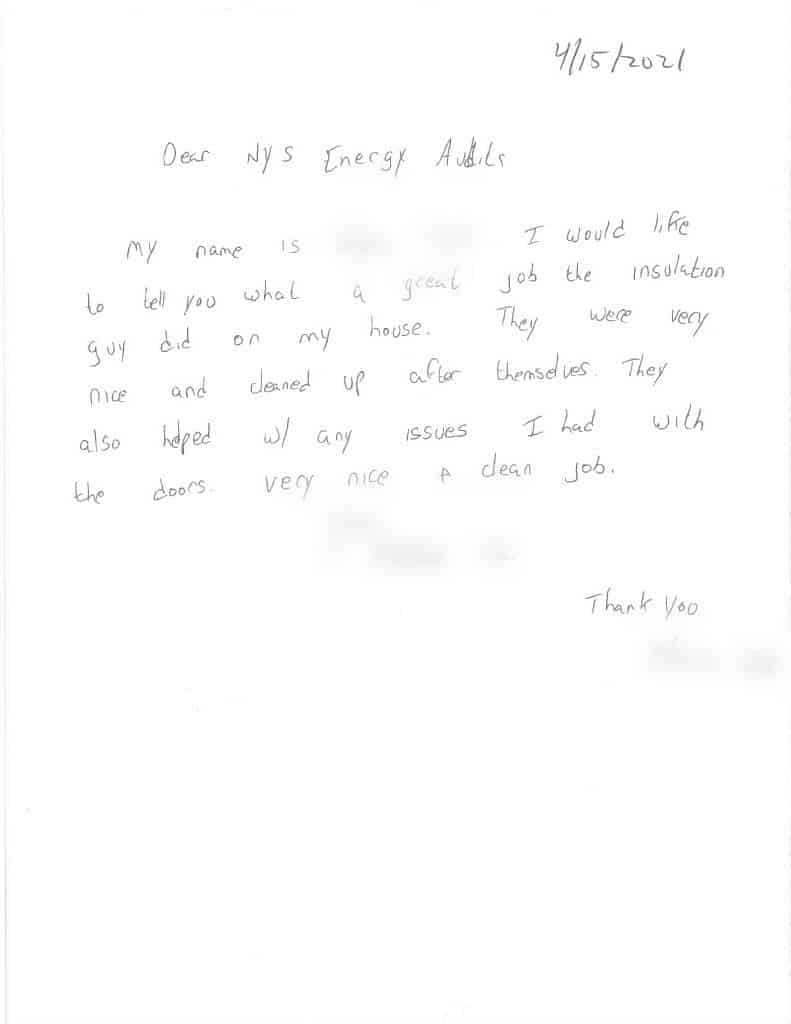 4/15/2021
Dear NYS Energy Audits
My name is I would like
to tell you what a great job the insulation
guy did on my house. They were very
nice and cleaned up after themselves. They
also helped w/ any issues I had with
the doors. Very nice & clean job.
Thank you